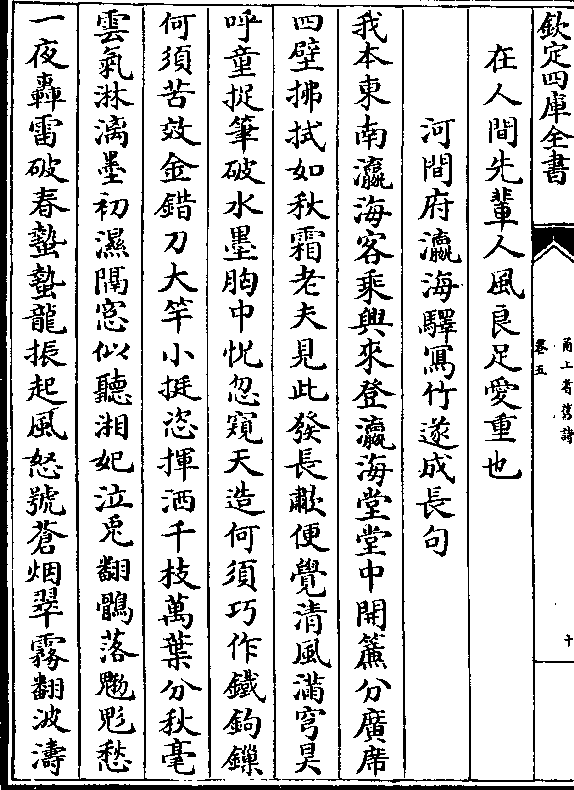 欽定四庫全書
甬上耆舊詩
卷五
十
在人間先輩人風良足愛重也
河間府瀛海驛寫竹遂成長句
我本東南瀛海客乘興來登瀛海堂堂中開簾分廣席
四壁拂拭如秋霜老夫見此發長歗便覺清風滿穹昊
呼童捉筆破水墨胸中恍忽窺天造何須巧作鐵鉤鏁
何須苦效金錯刀大竿小挺恣揮洒千枝萬葉分秋毫
雲氣淋漓墨初濕隔窓似聽湘妃泣兎翻鶻落魑鬽愁
一夜轟雷破春蟄蟄龍振起風怒號蒼烟翠霧翻波濤